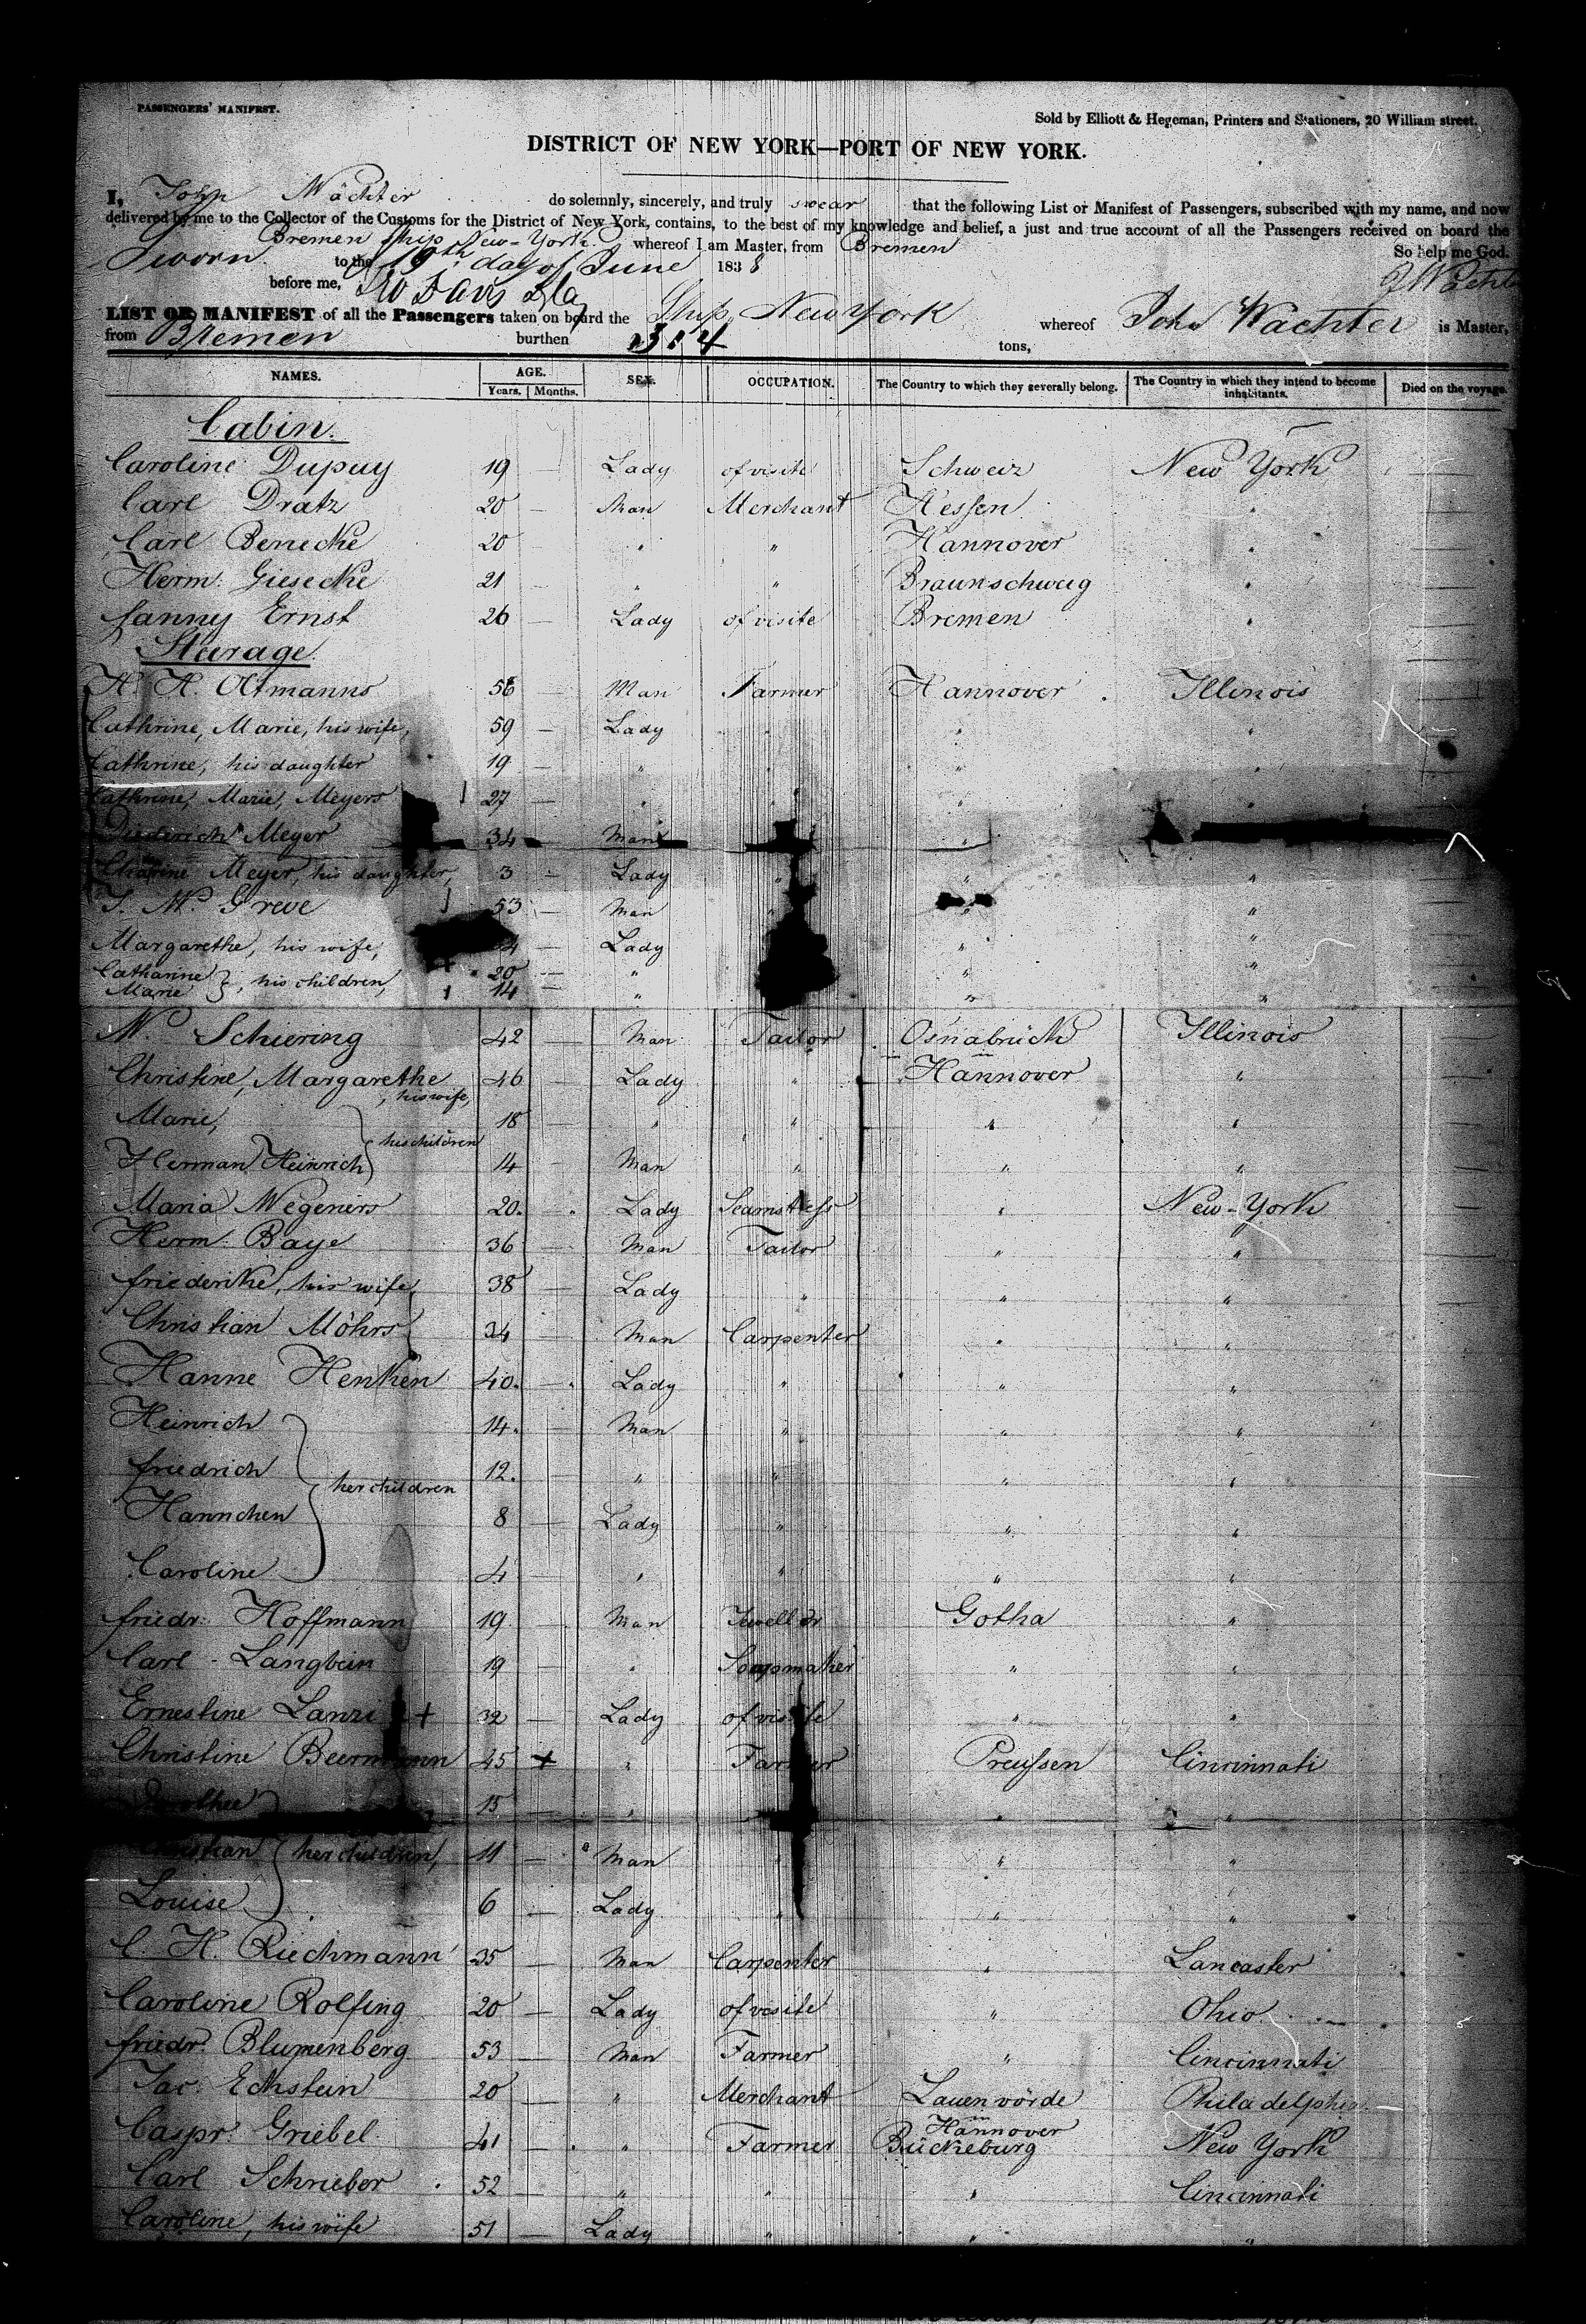 PASSENGERS' MANIFEST.
Sold by Elliott & Hegeman, Printers and Stationers, 20 William street.
DISTRICT OF NEW YORK—PORT OF NEW YORK.
I, John Wächter do solemnly, sincerely, and truly swear that the following List or Manifest of Passengers, subscribed with my name, and now
delivered by me to the Collector of the Customs for the District of New York, contains, to the best of my knowledge and belief, a just and true account of all the Passengers received on board the
Bremen Ship New-York whereof I am Master, from Bremen
Sworn to the 19th day of June 1838 So help me God.
before me, J Wächter
LIST OR MANIFEST of all the Passengers taken on board the Ship New York whereof John Wächter is Master,
from Bremen burthen 314 tons,
NAMES. AGE. Years. Months. SEX. OCCUPATION. The Country to which they severally belong. The Country in which they intend to become inhabitants. Died on the voyage.
Cabin.
Caroline Dupuy 19 — Lady of visite Schweiz New York
Carl Dratz 20 — Man Merchant Hessen "
Carl Benecke 20 — " " Hannover "
Herm. Giesecke 21 — " " Braunschweig "
fanny Ernst 26 — Lady of visite Bremen "
Steerage.
H. H. Oltmanns 56 — Man Farmer Hannover Illinois
Cathrine, Marie, his wife, 59 — Lady " " "
Cathrine, his daughter 19 — " " " "
Cathrine, Marie, Meyers 27 — " " " "
Diederich Meyer 34 — Man "
Meyer, his daughter, 3 — Lady " " "
Greve 53 — Man " "
Margarethe, his wife, — Lady " "
Catharine 20 — " " "
Marie }, his children, 14 — " " "
W. Schiering 42 — Man Tailor Osnabrück Illinois
Christine, Margarethe, his wife, 46 — Lady " Hannover "
Marie, 18 " " " "
} his children
Herman Heinrich 14 Man " " "
Maria Wegeners 20. Lady Seamstress " New-York
Herm. Baye 36 — Man Tailor " "
friederike, his wife, 38 — Lady " " "
Christian Möhrs 34 — Man Carpenter " "
Hanne Henken 40. — Lady " " "
Heinrich 14. — Man " " "
friedrich 12. — " " " "
} her children
Hannchen 8 — Lady " " "
Caroline 4 — " " " "
friedr. Hoffmann 19. — Man Jeweller Gotha "
Carl Langbein 19 — " Soapmaker " "
Ernestine Lanzi + 32 — Lady of visite " "
Christine Beermann 45 + " Farmer Preussen Cincinnati
Dorothee 15 — " " "
Christian } her children, 11 — Man " "
Louise 6 — Lady " " "
C. H. Riechmann 35 — Man Carpenter " Lancaster
Caroline Rolfing 20 — Lady of visite " Ohio
friedr. Blumenberg 53 — Man Farmer " Cincinnati
Jac. Eckstein 20 — " Merchant Lauenvörde Philadelphia
Hannover
Caspr. Griebel 41 — " Farmer Bückeburg New York
Carl Schrieber 52 — " " " Cincinnati
Caroline, his wife 51 — Lady " " "